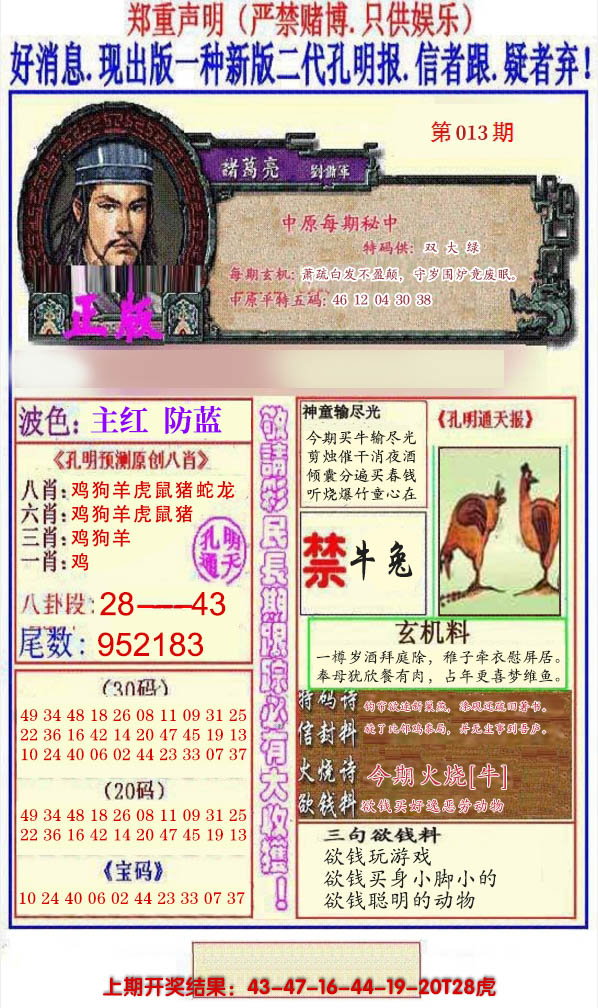 郑重声明（严禁赌博.只供娱乐）
好消息.现出版一种新版二代孔明报.信者跟.疑者弃！
第013期
諸葛亮
中原每期秘中
特码供：双 大 绿
每期玄机：萧疏白发不盈颠，守岁围炉竟废眠。
中原平特五码：46 12 04 30 38
正版
波色：主红 防蓝
《孔明预测原创八肖》
八肖：鸡狗羊虎鼠猪蛇龙
六肖：鸡狗羊虎鼠猪
三肖：鸡狗羊
一肖：鸡
孔明
通天
八卦段：28——43
尾数：952183
（30码）
49 34 48 18 26 08 11 09 31 25
22 36 16 42 14 20 47 45 19 13
10 24 40 06 02 44 23 33 07 37
（20码）
49 34 48 18 26 08 11 09 31 25
22 36 16 42 14 20 47 45 19 13
《宝码》
10 24 40 06 02 44 23 33 07 37
敬請彩民長期跟踪必有大收獲！
神童输尽光
今期买牛输尽光
剪烛催干消夜酒
倾囊分遍买春钱
听烧爆竹童心在
《孔明通天报》
禁 牛兔
玄机料
一樽岁酒拜庭除，稚子牵衣慰屏居。
奉母犹欣餐有肉，占年更喜梦维鱼。
特码诗
信封料
火烧诗 今期火烧[牛]
欲钱料 欲钱买好逸恶劳动物
三句欲钱料
欲钱玩游戏
欲钱买身小脚小的
欲钱聪明的动物
上期开奖结果：43-47-16-44-19-20T28虎